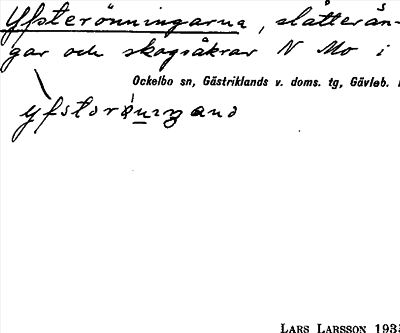 Yfsterönningarna, slåtterän-
gar och skogsåkrar N Mo i
Ockelbo sn, Gästriklands v. doms. tg, Gävleb.
LARS LARSSON 193